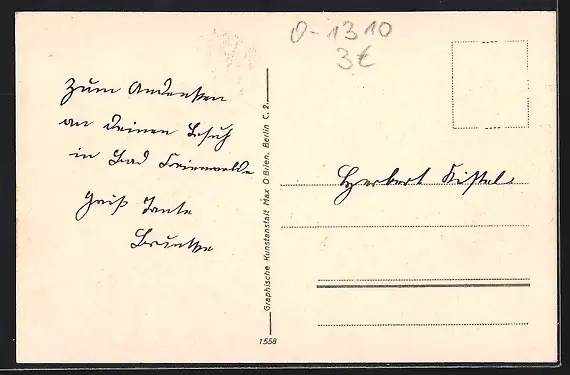 O-1310
3€
Zum Andenken
an deinen Besuch
in Bad Freienwalde
Gruß Tante
Herbert Kistel
Graphische Kunstanstalt Max O'Brien, Berlin C. 2.
1558